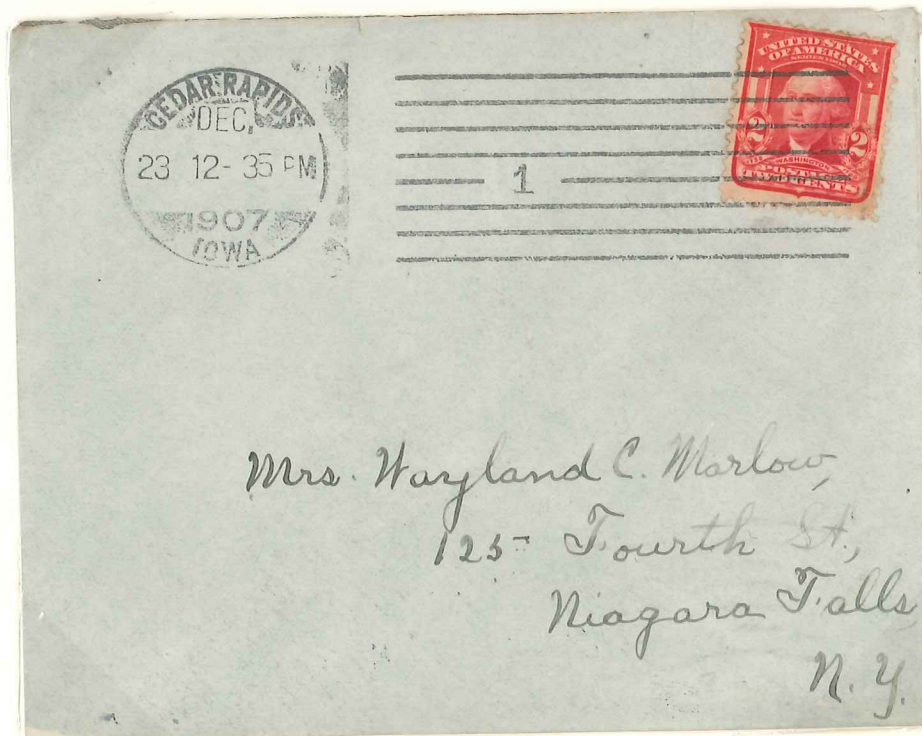 CEDAR RAPIDS
DEC.
23 12-35 PM
1907
IOWA
1
UNITED STATES
OF AMERICA
SERIES 1902
2 2
WASHINGTON
TWO CENTS
Mrs. Wayland C. Marlow,
125 Fourth St.,
Niagara Falls
N. Y.